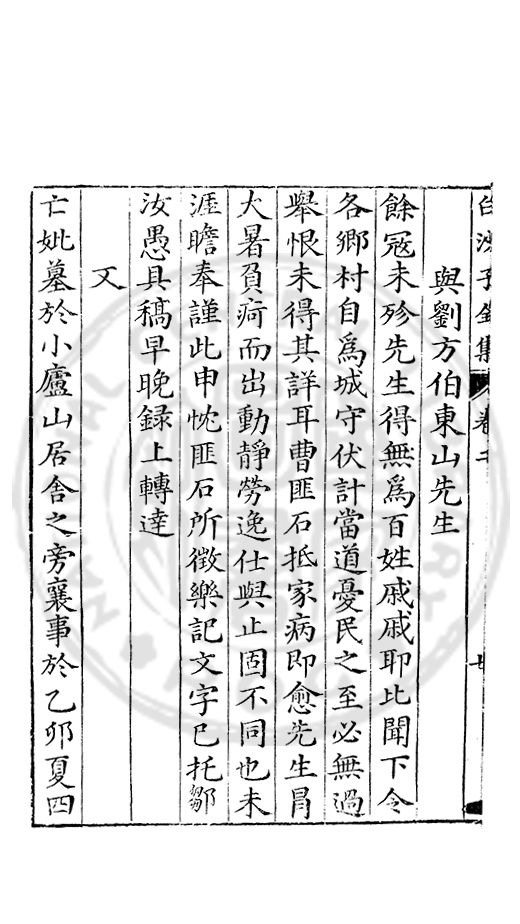 白沙子全集 卷二
與劉方伯東山先生
餘冦未殄先生得無爲百姓戚戚耶比聞下令
各鄉村自爲城守伏計當道憂民之至必無過
舉恨未得其詳耳曹匪石抵家病即愈先生冐
大暑負疴而出動靜勞逸仕與止固不同也未
涯瞻奉謹此申忱匪石所徵樂記文字已托鄒
汝愚具稿早晚録上轉達
又
亡妣墓於小廬山居舍之旁襄事於乙卯夏四